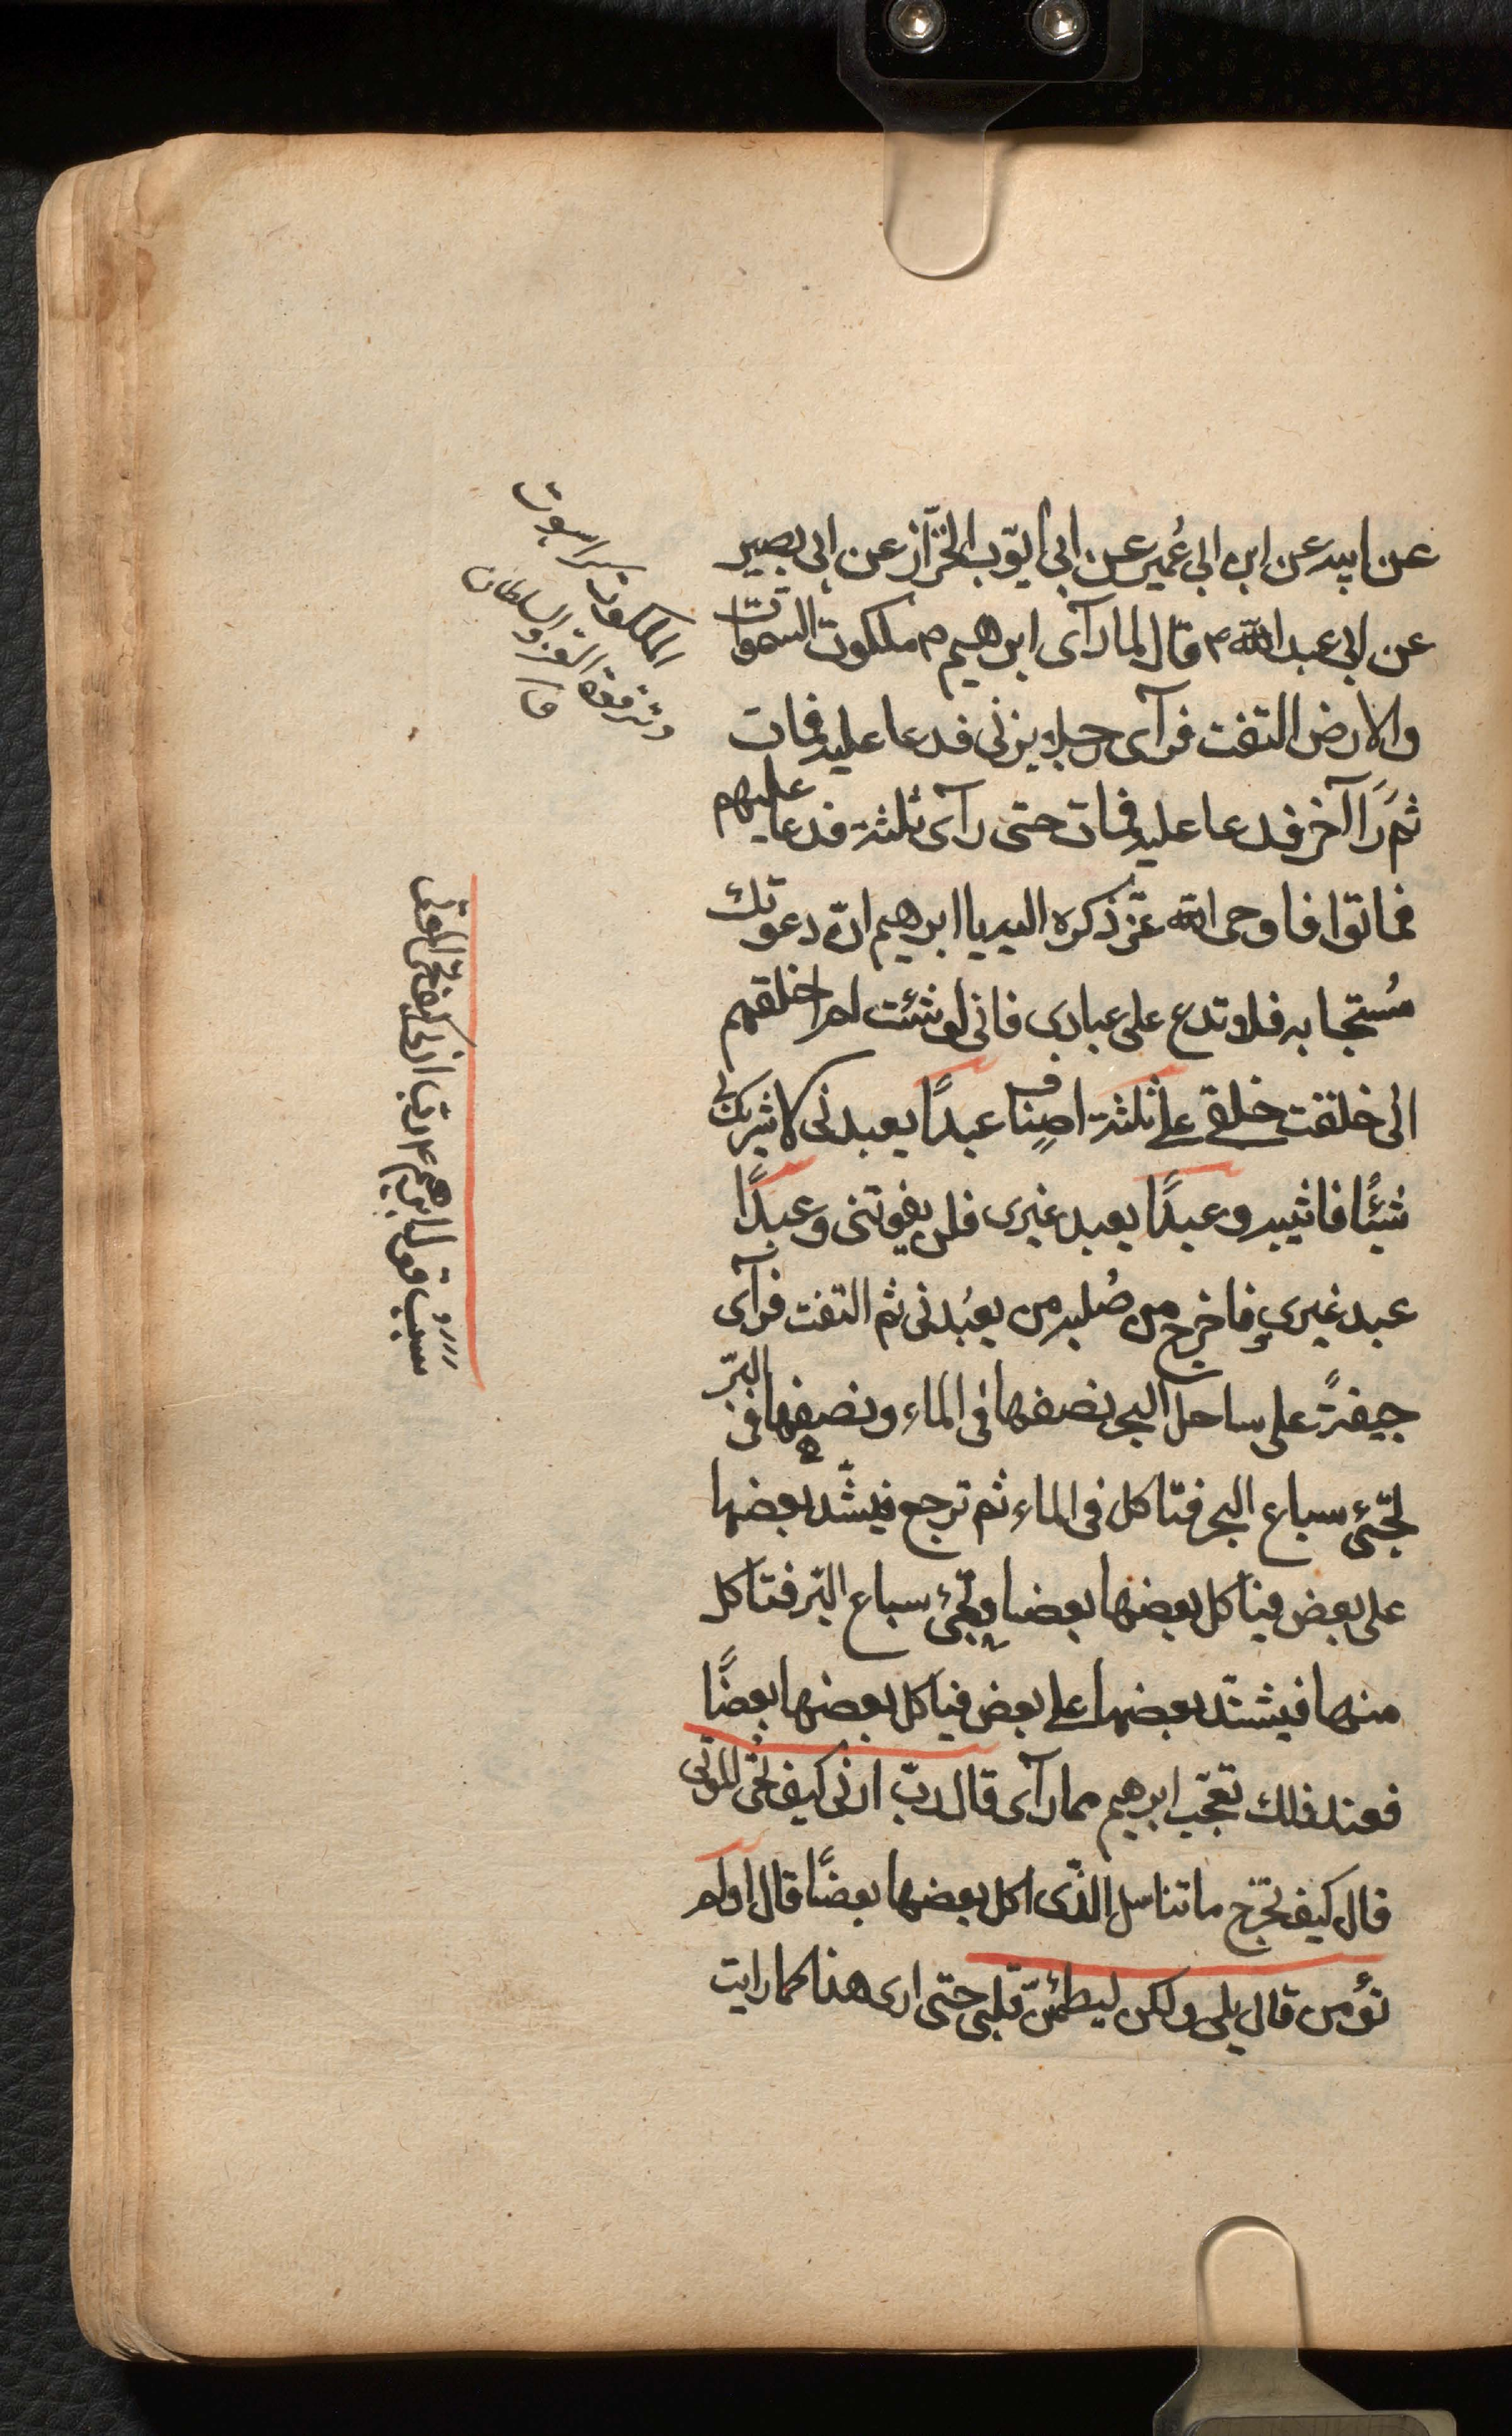 عن ابيه عن ابن ابي عُمير عن ابي ايّوب الخزّاز عن ابي بصير
عن ابي عبد الله ع قال لما رآى ابرهيم ع ملكوت السموات
والارض التفت فرآى رجلا يزنى فدعا عليه فمات
ثم رَاَ آخر فدعا عليه فمات حتى رآى ثلثة فدعا عليهم
فماتوا فاوحى الله عزّ ذكره اليه يا ابرهيم انّ دعوتك
مُستجابه فلا تدع على عبادى فانى لو شئت لم اخلقهم
انى خلقت خلقى على ثلثة اصناف عبدًا يعبدنى لا يشرك بى
شيئًا فاثيبه وعبدًا يعبد غيرى فلن يفوتنى وعبدًا
عبد غيرى فاخرج من صُلبه من يعبُدنى ثم التفت فرآى
جيفةً على ساحل البحر نصفها فى الماء ونصفها فى البرّ
تجيئ سباع البحر فتاكل فى الماء ثم ترجع فيشدّ بعضها
على بعض فياكل بعضها بعضا وتجيئ سباع البرّ فتاكل
منها فيشتدّ بعضها على بعض فياكل بعضها بعضًا
فعند ذلك تعجّب ابرهيم مما رآى قال ربّ ارنى كيف تُحى الموتى
قال كيف تخرج ما تناسل الذّى اكل بعضها بعضًا قال اولم
تؤمن قال بلى ولكن ليطمئنّ قلبى حتى ارى هذا كما رايت
الملكوت
العز والسلطان
سبب قول ابرهيم ع رب ارنى كيف تحى الموتى